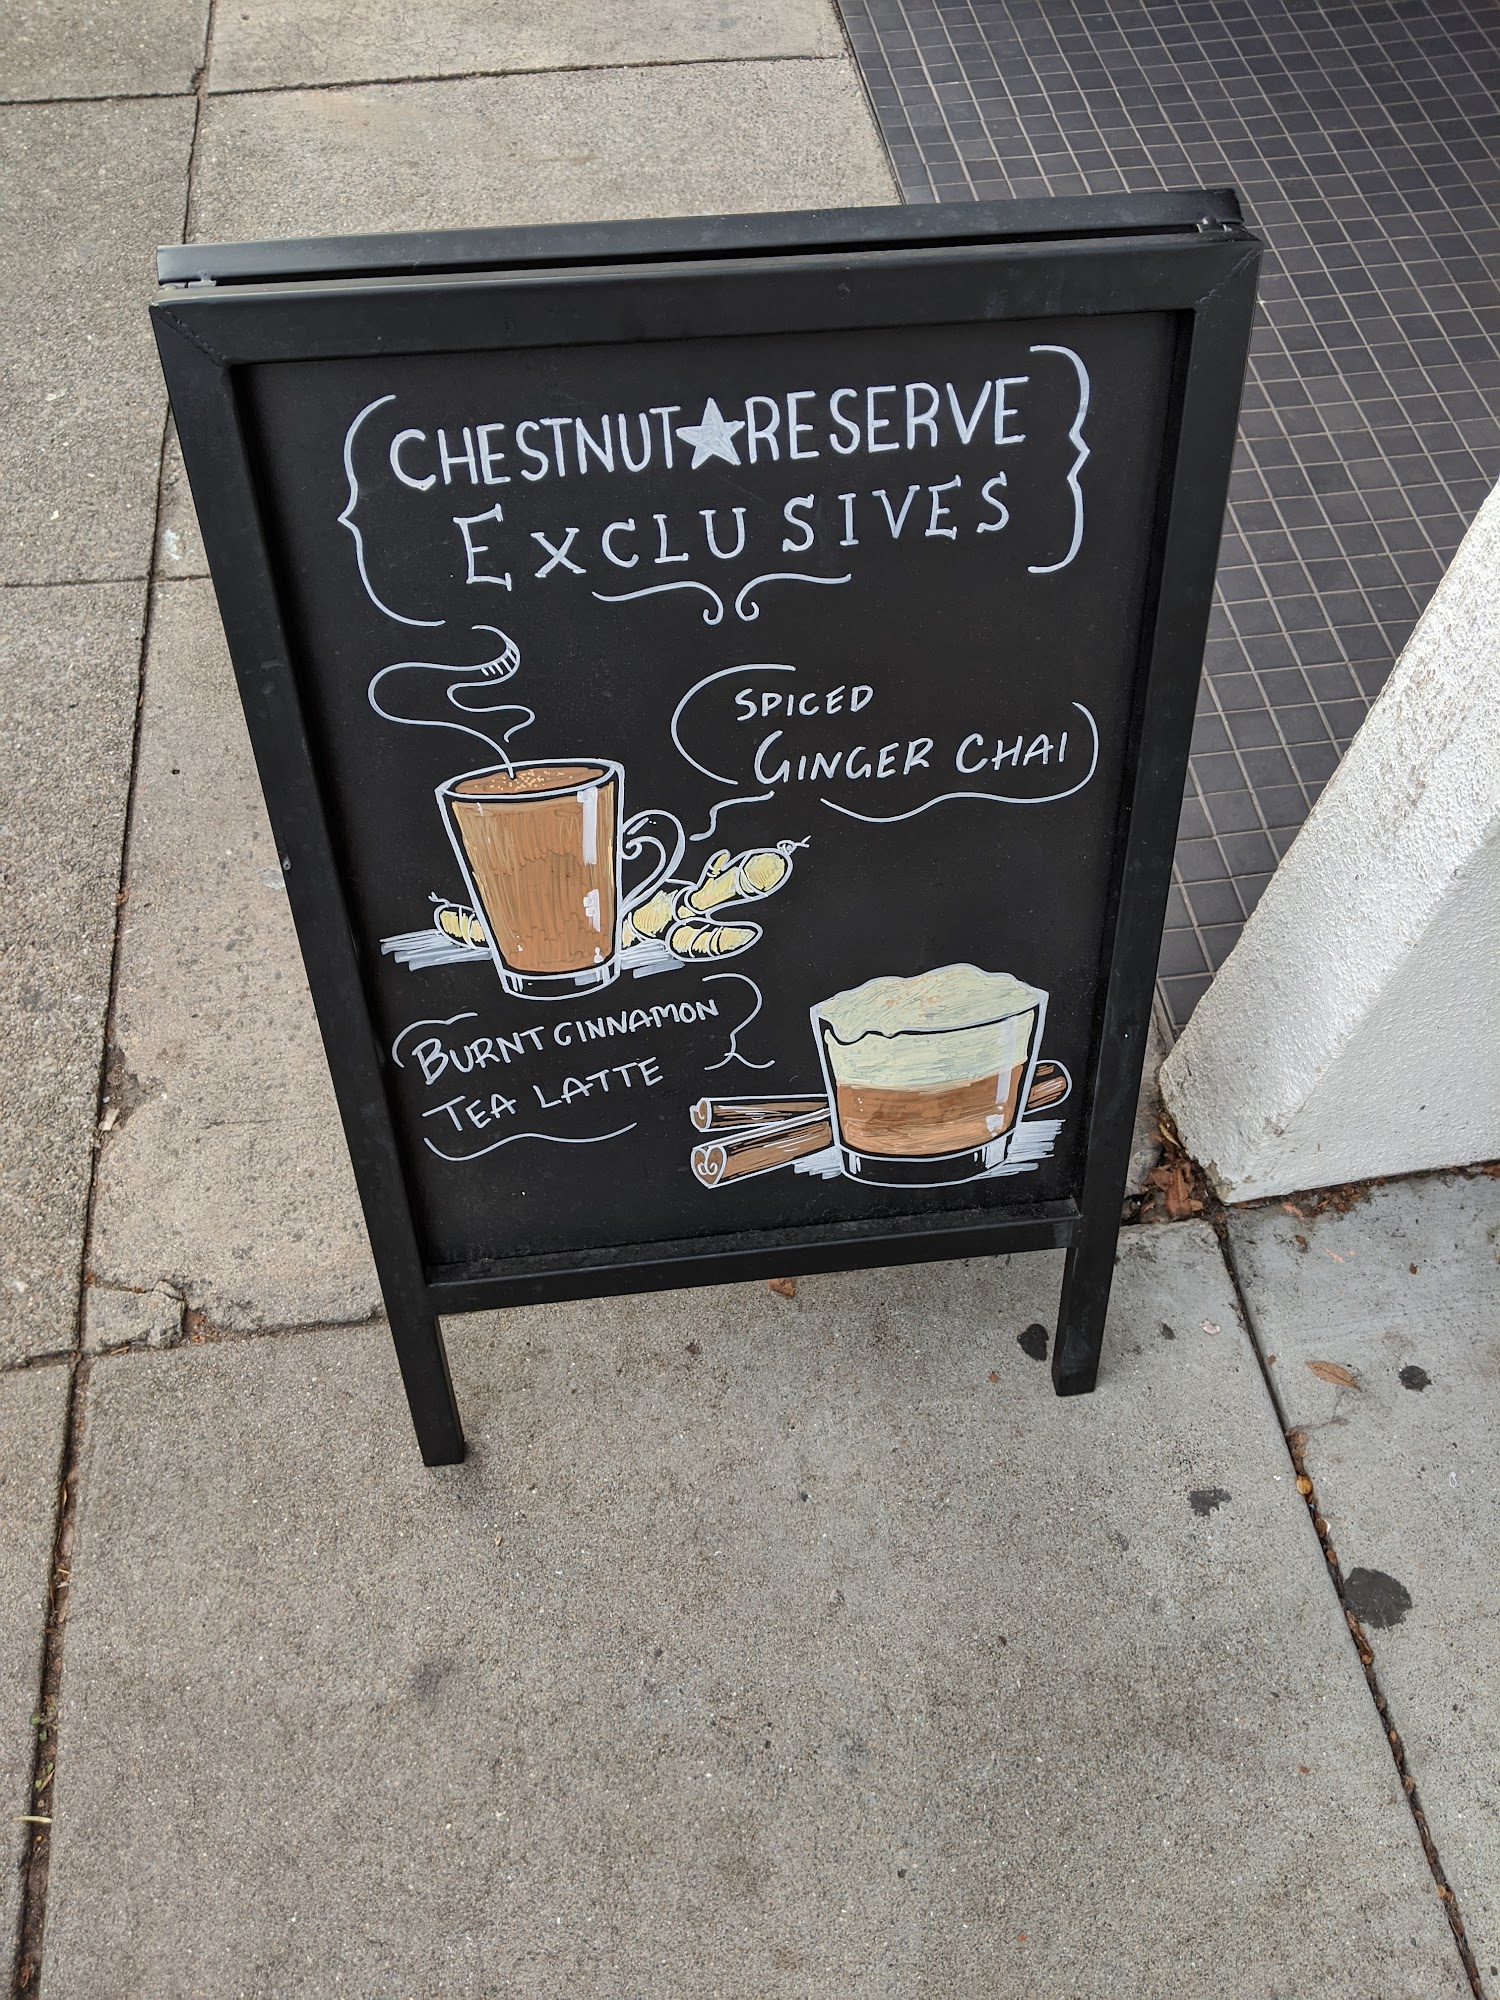 CHESTNUT★RESERVE
EXCLUSIVES
SPICED
GINGER CHAI
BURNT CINNAMON
TEA LATTE